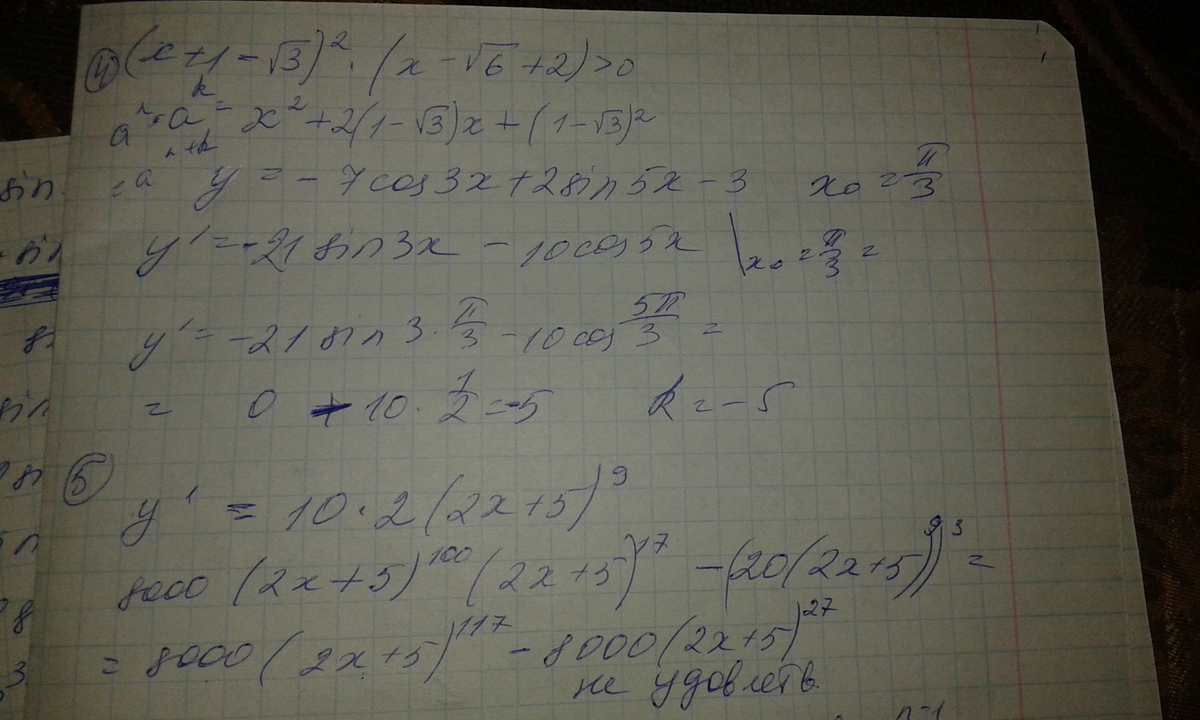 ④ (x+1-√3)² · (x-√6+2)>0
aⁿ·aᵏ = x²+2(1-√3)x+(1-√3)²
=aⁿ⁺ᵏ y = -7cos3x+2sin5x-3 x₀=π/3
y' = -21sin3x - 10cos5x |x₀=π/3 =
y' = -21 sin 3·π/3 -10cos 5π/3 =
= 0 - 10·1/2 = -5 k = -5
⑤ y' = 10·2(2x+5)⁹
8000 (2x+5)¹⁰⁰ (2x+5)¹⁷ -(20(2x+5)⁹)³ =
= 8000 (2x+5)¹¹⁷ - 8000(2x+5)²⁷
не удовлетв.